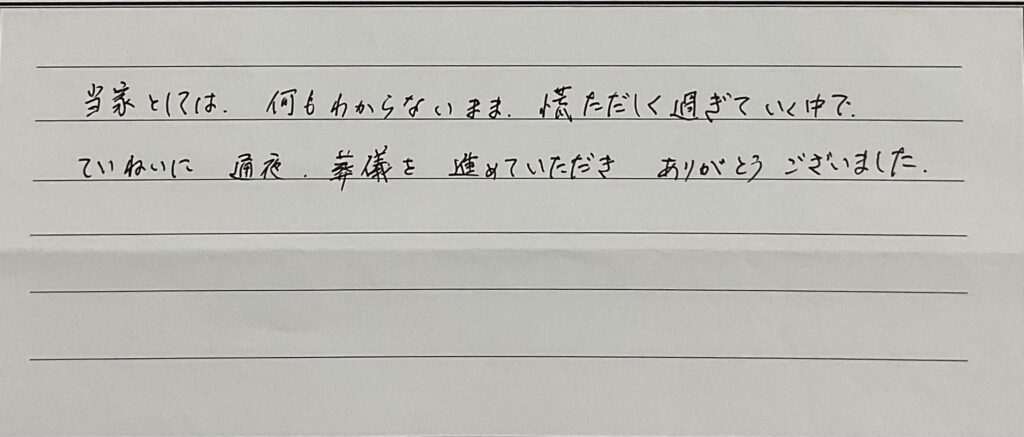 当家としては、何もわからないまま、慌ただしく過ぎていく中で、
ていねいに 通夜、葬儀を 進めていただき ありがとう ございました。